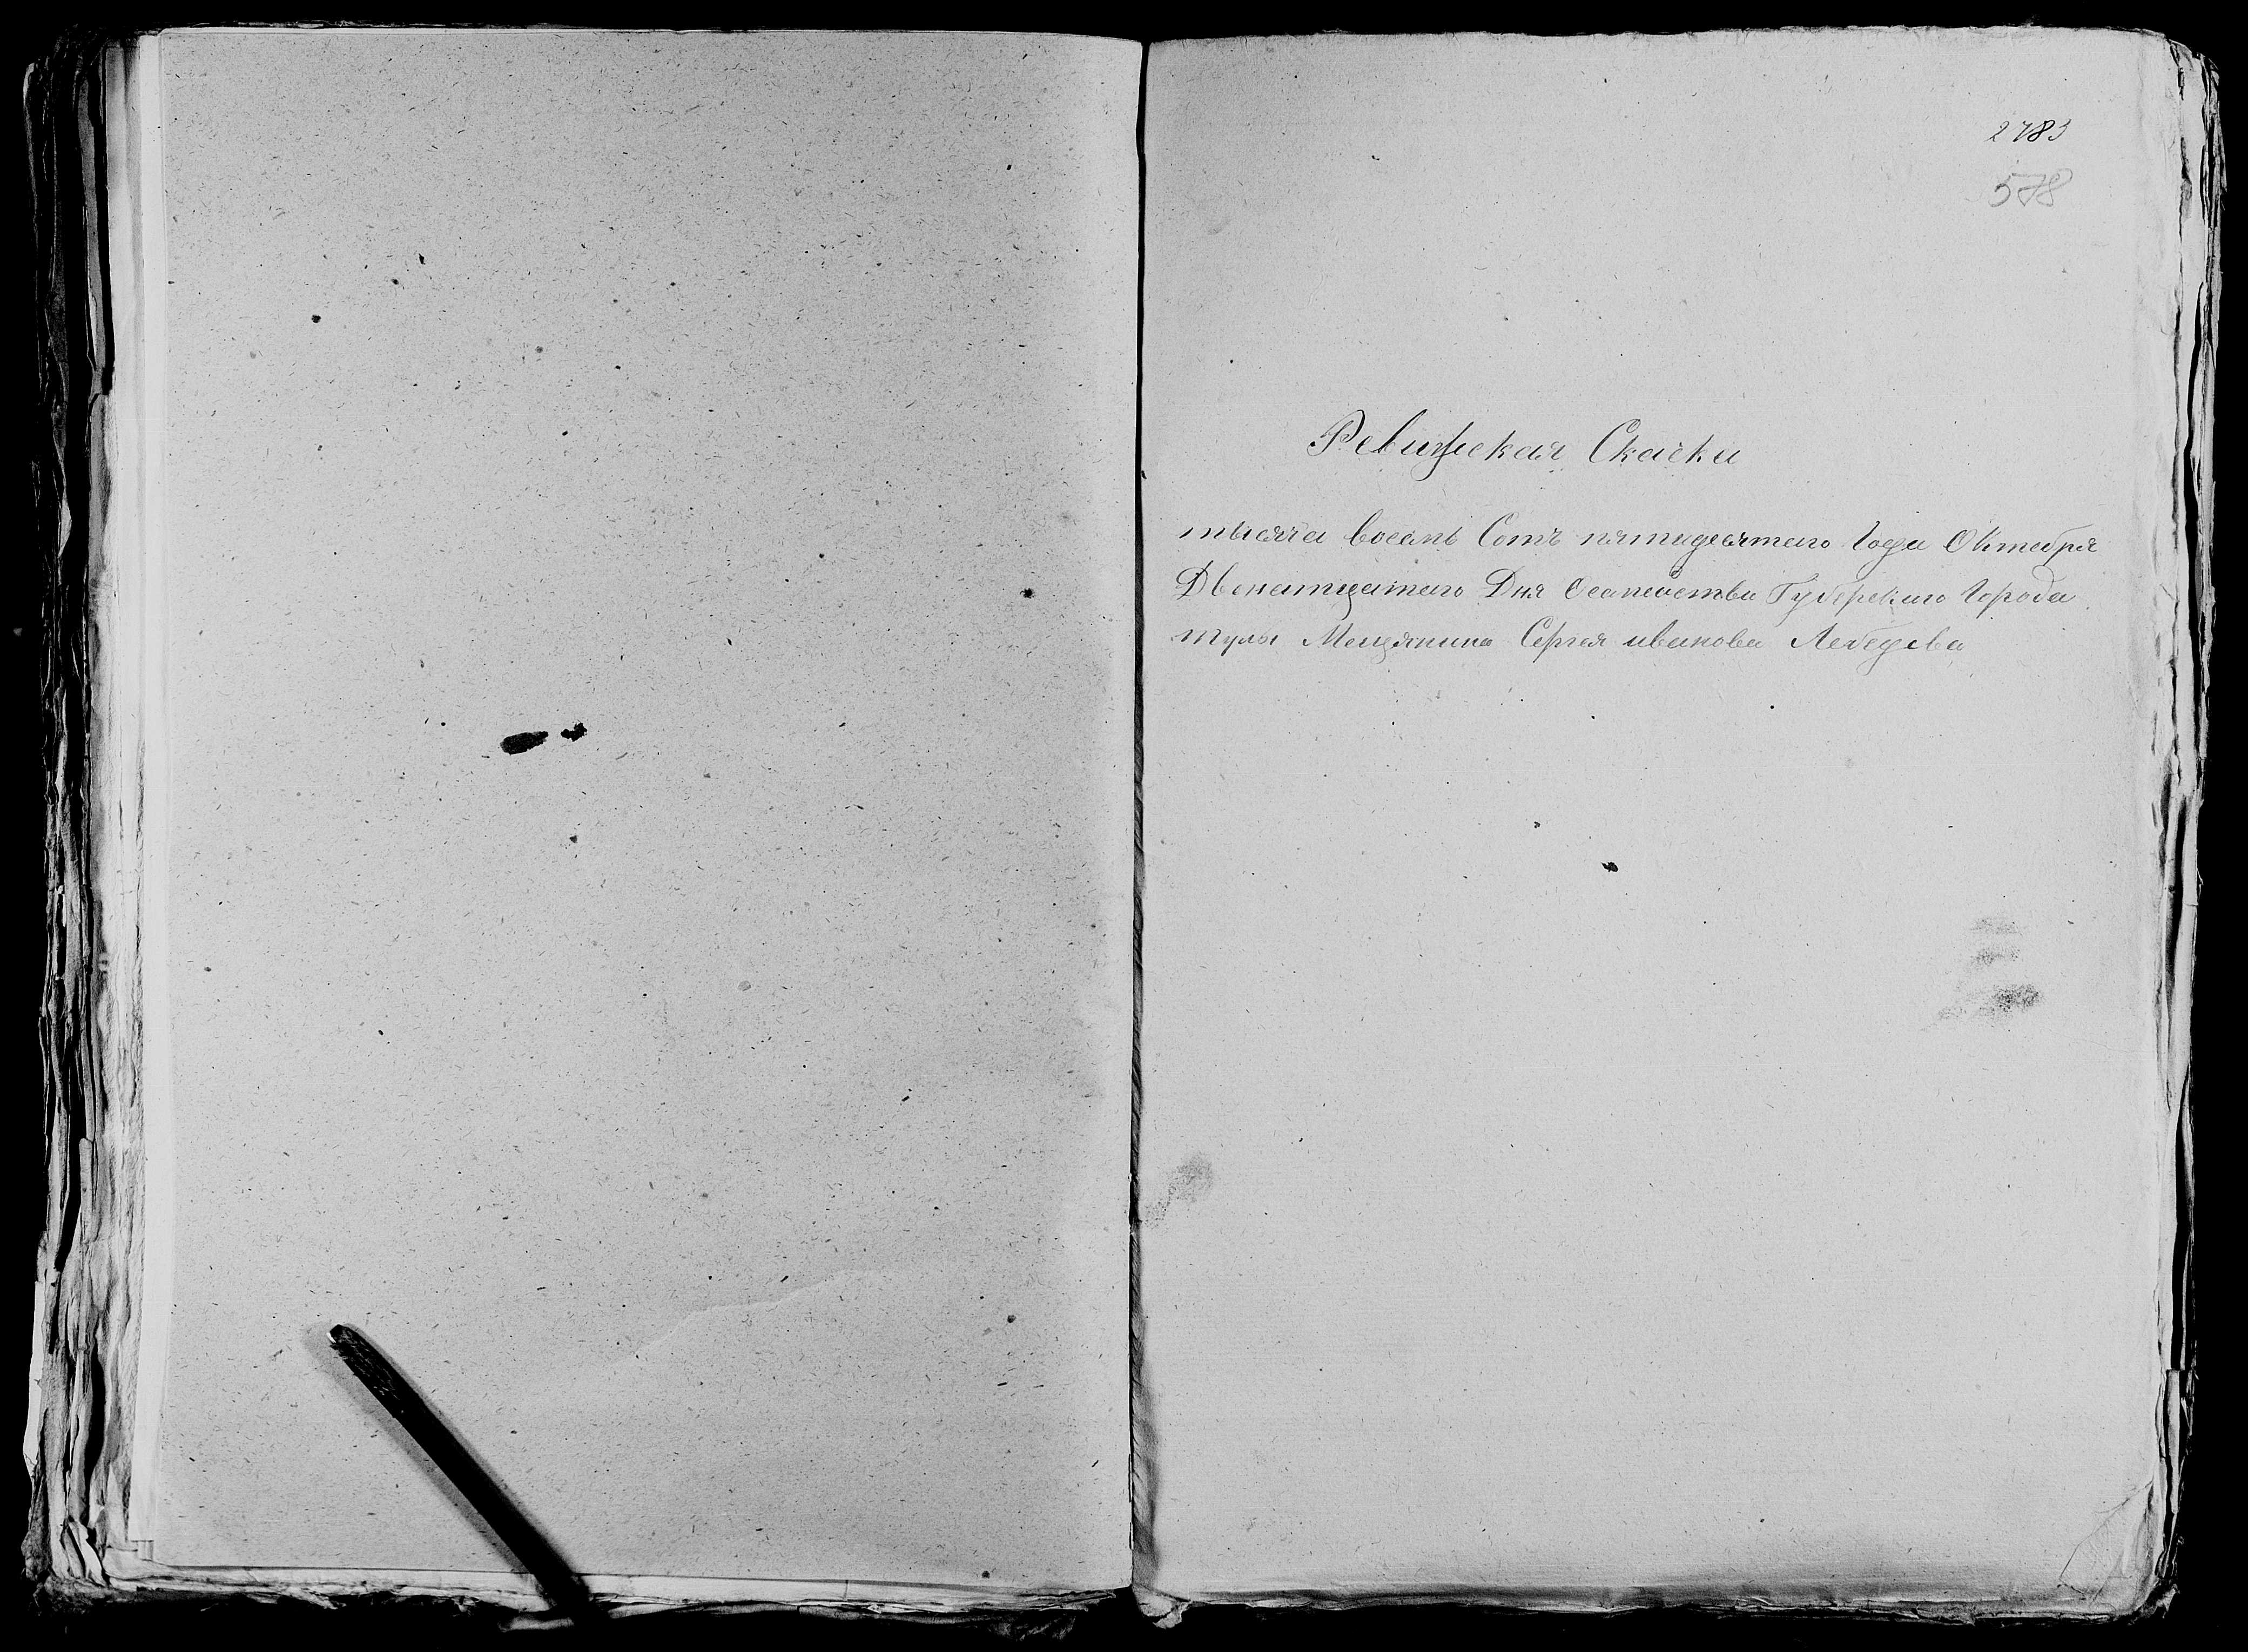 2783
578
Ревижская Скаска
тысяча восемь Сотъ пятидесятаго Года Октября
Двенатцатаго Дня Губерскаго Города
тулы Мещянина Сергея иванова Лебедева